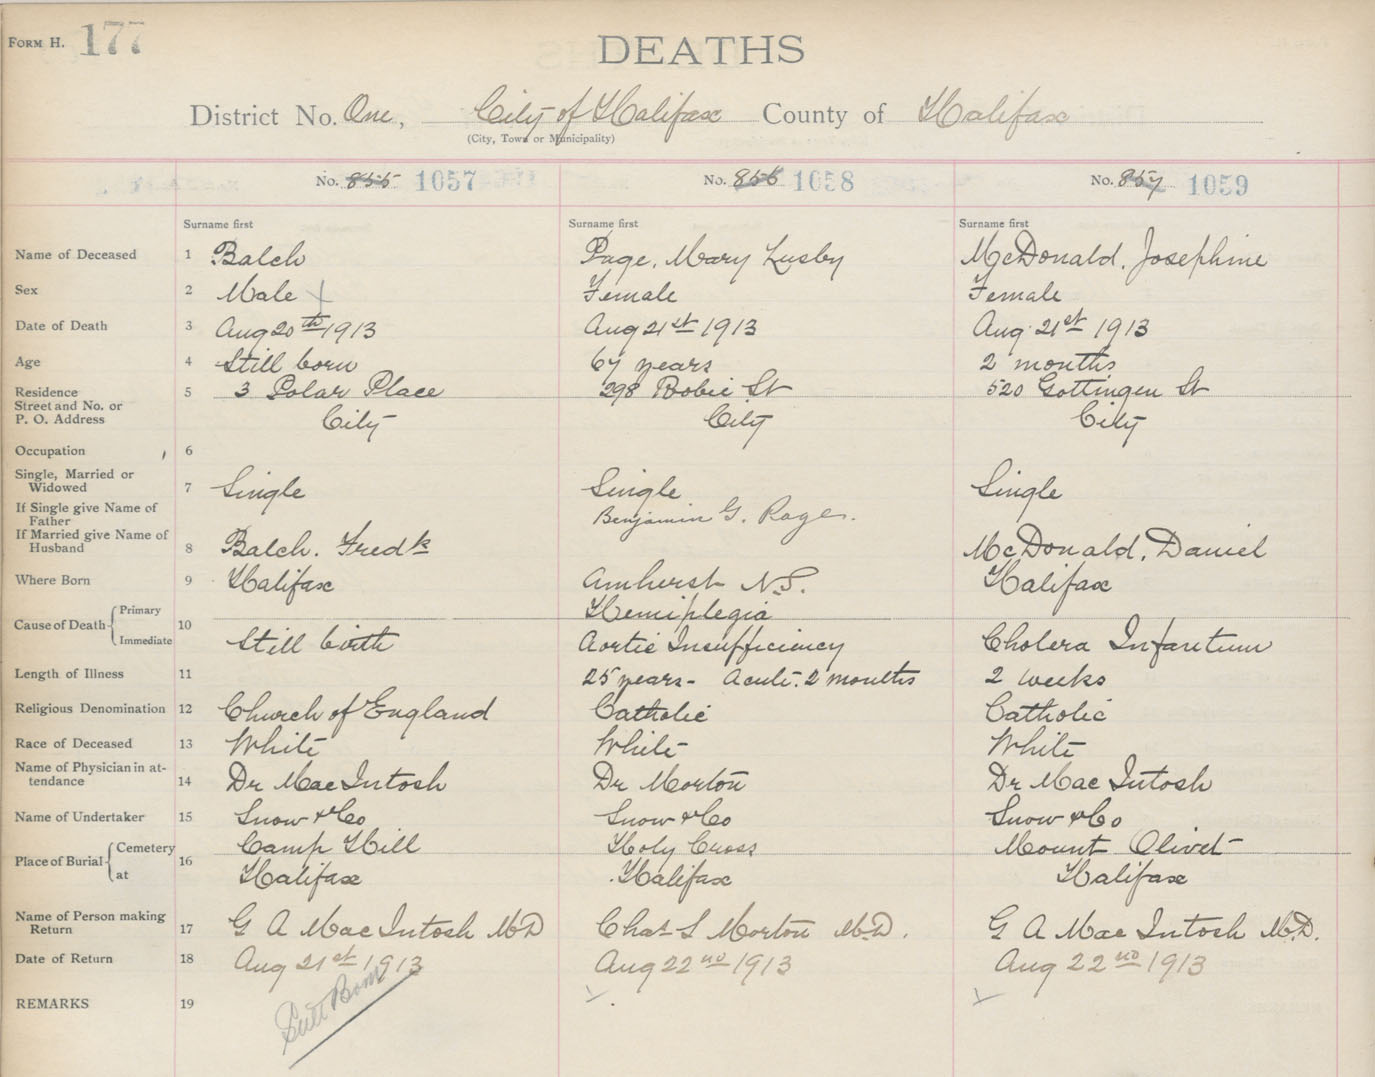 FORM H. 177
DEATHS
District No. One, City of Halifax County of Halifax
(City, Town or Municipality)
No. 855 1057 No. 856 1058 No. 857 1059
Surname first Surname first Surname first
Name of Deceased 1 Balch Page, Mary Lusby McDonald, Josephine
Sex 2 Male Female Female
Date of Death 3 Aug 20th 1913 Aug 21st 1913 Aug 21st 1913
Age 4 Still born 67 years 2 months
Residence 5 3 Polar Place 298 Robie St 520 Gottingen St
Street and No. or
P. O. Address City City City
Occupation 6
Single, Married or
Widowed 7 Single Single Single
If Single give Name of
Father Benjamin G. Page.
If Married give Name of
Husband 8 Balch. Fredk McDonald, Daniel
Where Born 9 Halifax Amherst N.S. Halifax
Cause of Death Primary 10 Hemiplegia
Immediate Still birth Aortic Insufficiency Cholera Infantum
Length of Illness 11 25 years - Acute. 2 months 2 weeks
Religious Denomination 12 Church of England Catholic Catholic
Race of Deceased 13 White White White
Name of Physician in at-
tendance 14 Dr MacIntosh Dr Morton Dr MacIntosh
Name of Undertaker 15 Snow & Co Snow & Co Snow & Co
Place of Burial Cemetery 16 Camp Hill Holy Cross Mount Olivet
at Halifax Halifax Halifax
Name of Person making
Return 17 G A MacIntosh MD Chas S Morton M.D. G A MacIntosh M.D.
Date of Return 18 Aug 21st 1913 Aug 22nd 1913 Aug 22nd 1913
REMARKS 19 Still Born